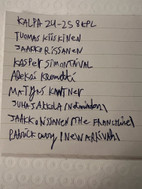 KALPA 24-25 8KPL
TUOMAS KIISKINEN
JAAKKO RISSANEN
KASPER SIMONTAIVAL
Aleksi Klemetti
MATYAS KANTNER
JUHA JÄÄSKELÄ
JAAKKO RISSANEN (THE FRANCHISE)
PATRICK CURRY (NEW ARRIVAL)